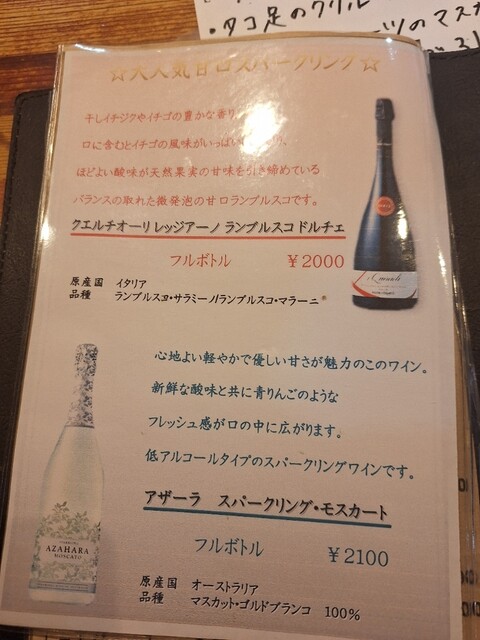 ・タコ足のグリル
☆大人気甘口スパークリング☆
干しイチジクやイチゴの豊かな香り
口に含むとイチゴの風味がいっぱい
ほどよい酸味が天然果実の甘味を引き締めている
バランスの取れた微発泡の甘口ランブルスコです。
クエルチオーリ レッジアーノ ランブルスコ ドルチェ
フルボトル ￥2000
原産国 イタリア
品種 ランブルスコ・サラミーノ/ランブルスコ・マラーニ
心地よい軽やかで優しい甘さが魅力のこのワイン。
新鮮な酸味と共に青りんごのような
フレッシュ感が口の中に広がります。
低アルコールタイプのスパークリングワインです。
アザーラ スパークリング・モスカート
フルボトル ￥2100
AZAHARA
MOSCATO
原産国 オーストラリア
品種 マスカット・ゴルドブランコ 100%